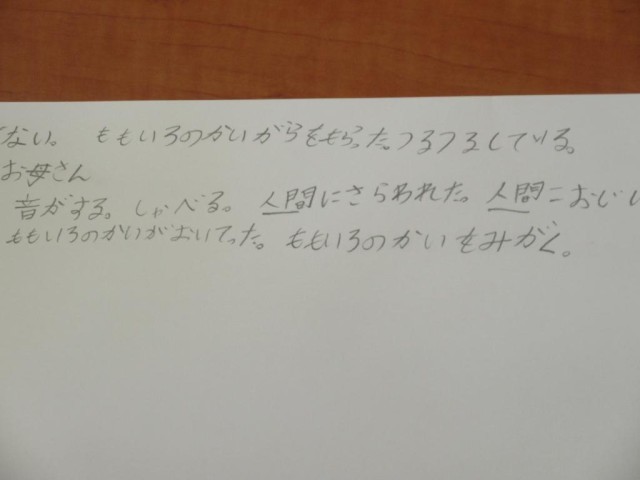 ない。 ももいろのかいがらをもらった。つるつるしている。
お母さん
音がする。しゃべる。 人間にさらわれた。人間=おじい
ももいろのかいがおいてった。ももいろのかいをみがく。